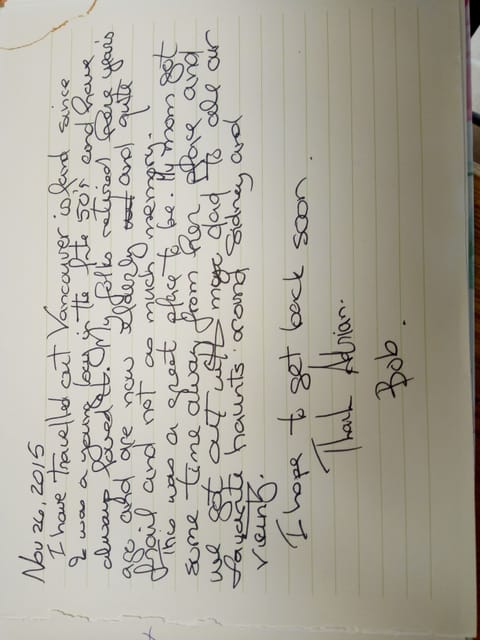 Nov 26, 2015
I have travelled out Vancouver island since
I was a young boy in the late 50's and have
always loved it. My folks retired here years
ago and are now elderly and quite
frail and not as much memory.
This was a great place to be. My mom got
some time away from her place and
we got out with my dad to all our
favourite haunts around Sidney and
vicinity.
I hope to get back soon.
Thank Adrian.
Bob.